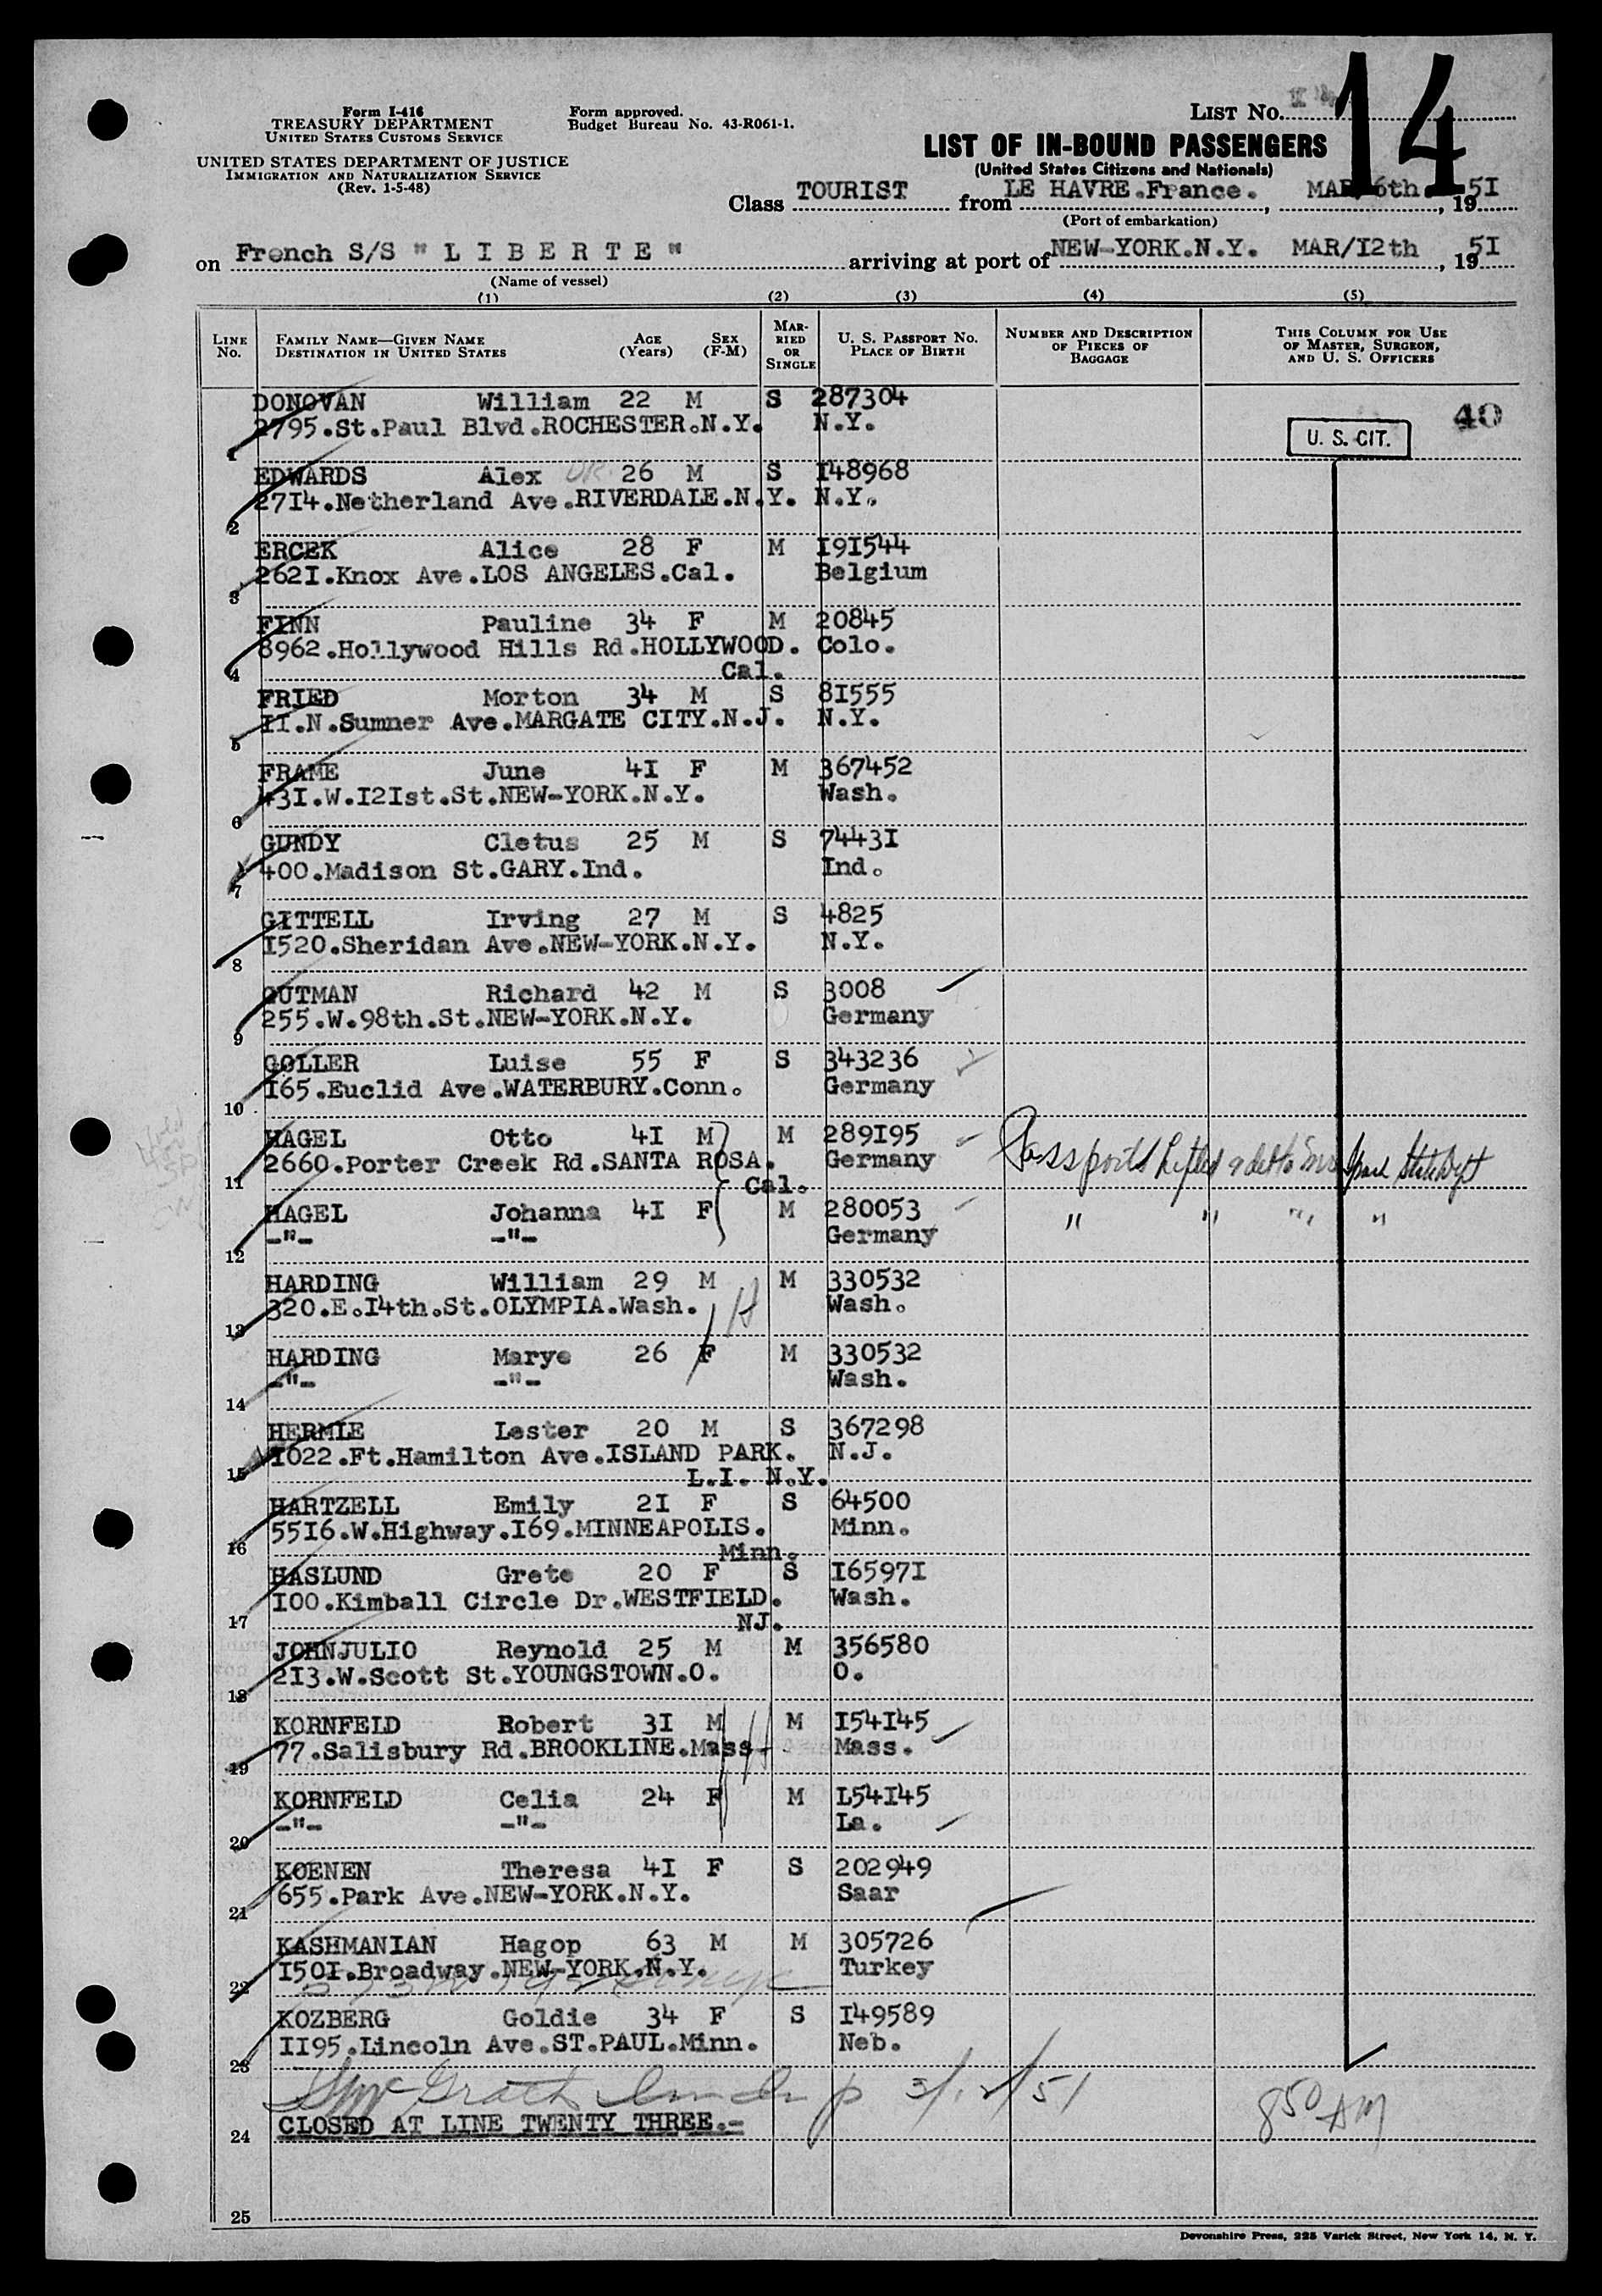 Form I-416
TREASURY DEPARTMENT
UNITED STATES CUSTOMS SERVICE
UNITED STATES DEPARTMENT OF JUSTICE
IMMIGRATION AND NATURALIZATION SERVICE
(Rev. 1-5-48)
Form approved.
Budget Bureau No. 43-R061-1.
LIST No. 14
LIST OF IN-BOUND PASSENGERS
(United States Citizens and Nationals)
Class TOURIST from LE HAVRE.France., MAR/6th, 1951
(Port of embarkation)
on French S/S "LIBERTE" arriving at port of NEW-YORK.N.Y. MAR/I2th, 195I
(Name of vessel)
(1) (2) (3) (4) (5)
LINE No. FAMILY NAME—GIVEN NAME DESTINATION IN UNITED STATES AGE (Years) SEX (F-M) MARRIED OR SINGLE U. S. PASSPORT No. PLACE OF BIRTH NUMBER AND DESCRIPTION OF PIECES OF BAGGAGE THIS COLUMN FOR USE OF MASTER, SURGEON, AND U. S. OFFICERS
DONOVAN William 22 M S 287304 40
1 2795.St.Paul Blvd.ROCHESTER.N.Y. N.Y. U. S. CIT.
EDWARDS Alex 26 M S I48968
2 27I4.Netherland Ave.RIVERDALE.N.Y. N.Y.
ERCEK Alice 28 F M I9I544
3 262I.Knox Ave.LOS ANGELES.Cal. Belgium
FINN Pauline 34 F M 20845
4 8962.Hollywood Hills Rd.HOLLYWOOD. Colo.
Cal.
FRIED Morton 34 M S 8I555
5 II.N.Sumner Ave.MARGATE CITY.N.J. N.Y.
FRAME June 4I F M 367452
6 43I.W.I2Ist.St.NEW-YORK.N.Y. Wash.
GUNDY Cletus 25 M S 7443I
7 400.Madison St.GARY.Ind. Ind.
GITTELL Irving 27 M S 4825
8 I520.Sheridan Ave.NEW-YORK.N.Y. N.Y.
GUTMAN Richard 42 M S 3008
9 255.W.98th.St.NEW-YORK.N.Y. Germany
GOLLER Luise 55 F S 343236
10 I65.Euclid Ave.WATERBURY.Conn. Germany
HAGEL Otto 4I M M 289I95
11 2660.Porter Creek Rd.SANTA ROSA. Germany Passports lifted
Cal.
HAGEL Johanna 4I F M 280053 " " " "
12 -"- -"- Germany
HARDING William 29 M M 330532
13 320.E.I4th.St.OLYMPIA.Wash. Wash.
HARDING Marye 26 F M 330532
14 -"- -"- Wash.
HERMLE Lester 20 M S 367298
15 I022.Ft.Hamilton Ave.ISLAND PARK. N.J.
L.I. N.Y.
HARTZELL Emily 2I F S 64500
16 55I6.W.Highway.I69.MINNEAPOLIS. Minn.
Minn.
HASLUND Grete 20 F S I6597I
17 I00.Kimball Circle Dr.WESTFIELD. Wash.
NJ.
JOHNJULIO Reynold 25 M M 356580
18 2I3.W.Scott St.YOUNGSTOWN.O. O.
KORNFELD Robert 3I M M I54I45
19 77.Salisbury Rd.BROOKLINE.Mass. Mass.
KORNFELD Celia 24 F M I54I45
20 -"- -"- La.
KOENEN Theresa 4I F S 202949
21 655.Park Ave.NEW-YORK.N.Y. Saar
KASHMANIAN Hagop 63 M M 305726
22 I50I.Broadway.NEW-YORK.N.Y. Turkey
KOZBERG Goldie 34 F S I49589
23 II95.Lincoln Ave.ST.PAUL.Minn. Neb.
McGrath 3/12/51 850 AM
24 CLOSED AT LINE TWENTY THREE.-
25
Devonshire Press, 225 Varick Street, New York 14, N. Y.